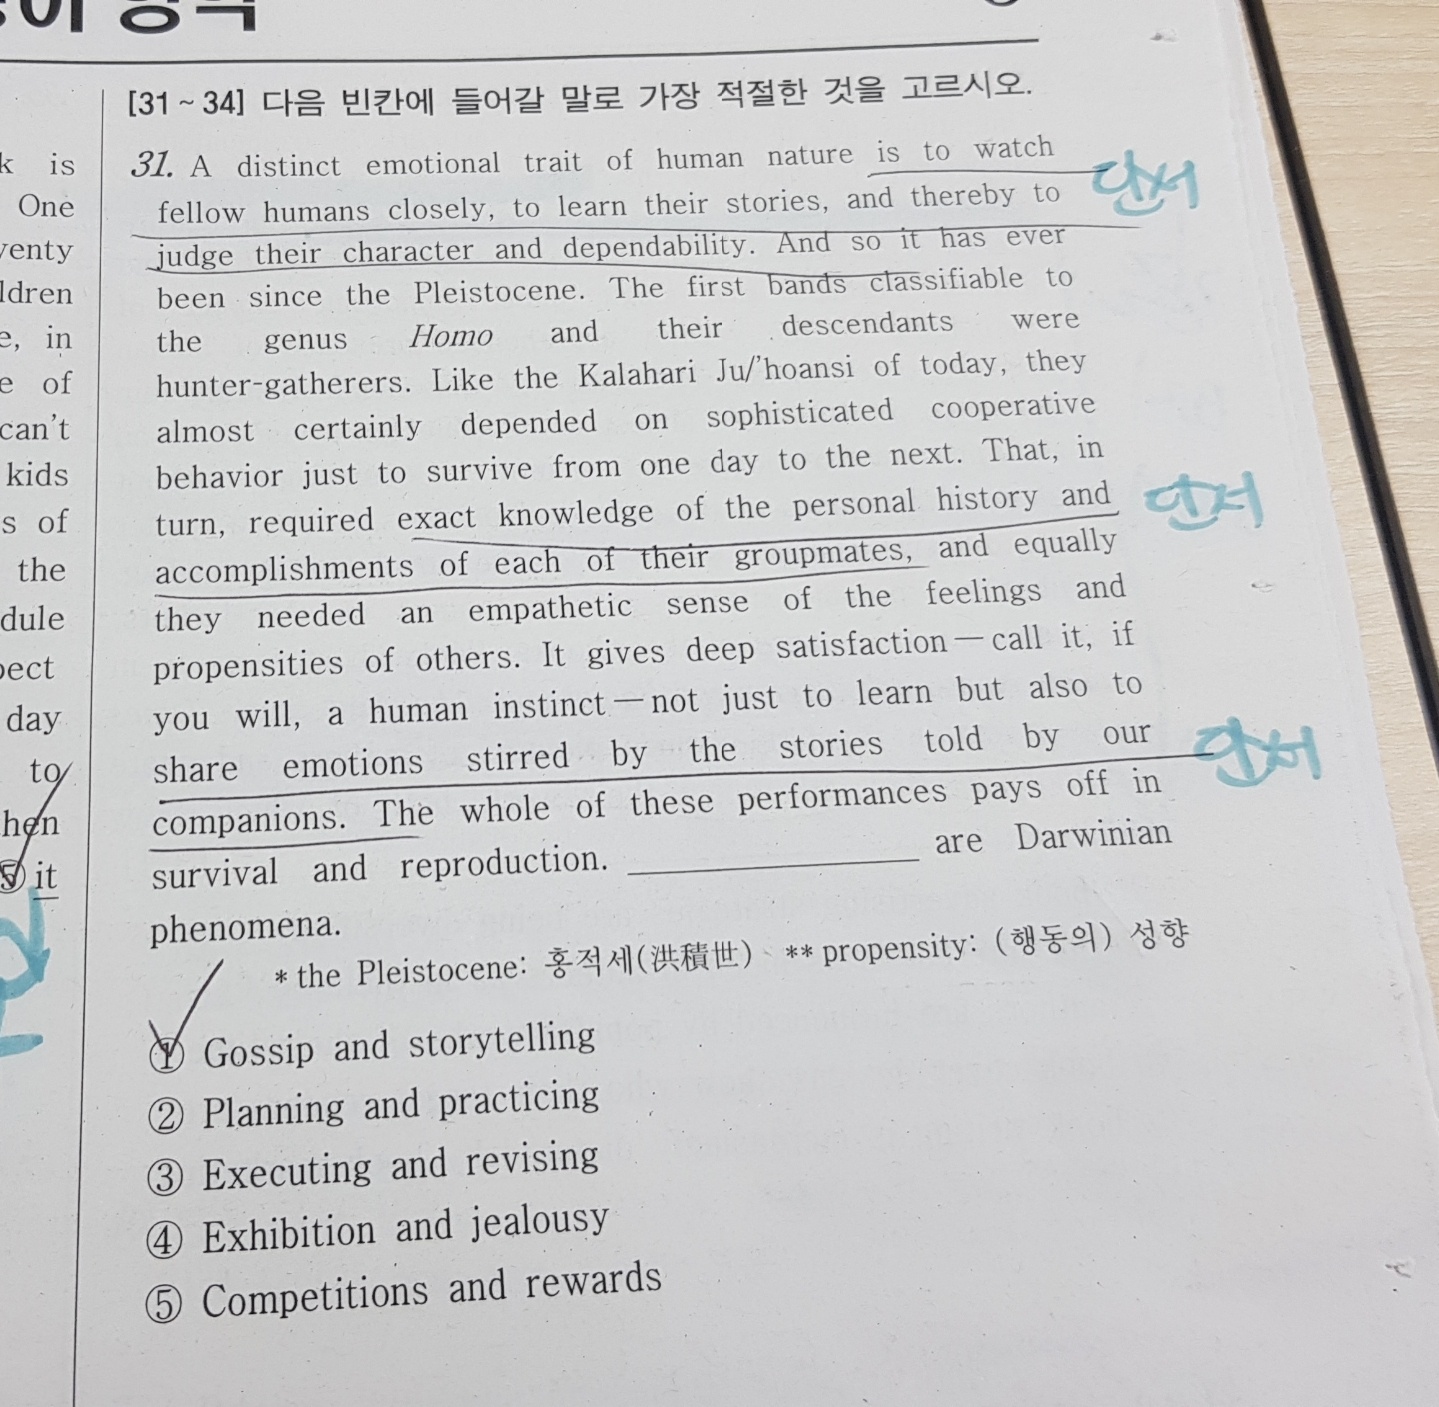 [31 ~ 34] 다음 빈칸에 들어갈 말로 가장 적절한 것을 고르시오.
k is
One
venty
ldren
e, in
e of
can't
kids
s of
the
dule
pect
day
to
hen
⑤ it
31. A distinct emotional trait of human nature is to watch
단서
fellow humans closely, to learn their stories, and thereby to
judge their character and dependability. And so it has ever
been since the Pleistocene. The first bands classifiable to
the genus Homo and their descendants were
hunter-gatherers. Like the Kalahari Ju/'hoansi of today, they
almost certainly depended on sophisticated cooperative
behavior just to survive from one day to the next. That, in
turn, required exact knowledge of the personal history and
단서
accomplishments of each of their groupmates, and equally
they needed an empathetic sense of the feelings and
propensities of others. It gives deep satisfaction — call it, if
you will, a human instinct — not just to learn but also to
share emotions stirred by the stories told by our
단서
companions. The whole of these performances pays off in
survival and reproduction. ____________ are Darwinian
phenomena.
* the Pleistocene: 홍적세(洪積世) ** propensity: (행동의) 성향
① Gossip and storytelling
② Planning and practicing
③ Executing and revising
④ Exhibition and jealousy
⑤ Competitions and rewards